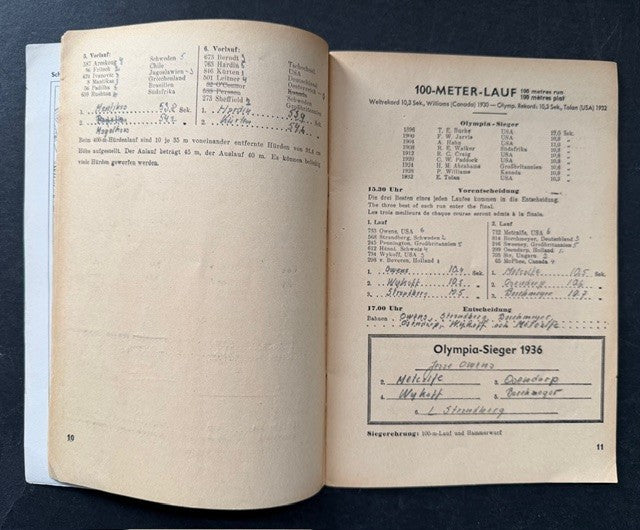 5. Vorlauf:
387 Schweden 5
56 Fritsch Chile
429 Ivanovic Jugoslawien
8 Mantikas Griechenland
56 Padilha Brasilien
429 Rushton Südafrika
1. Mantikas 53,8 Sek.
2. 54,2
3.
6. Vorlauf:
675 Berndt Tschechosl.
765 Hardin USA
846 Körten Deutschland
501 Leitner Österreich
02 O'Connor USA
603 Persson Schweden
273 Sheffield 2 Großbritannien
1. Hardin 53,9 Sek.
2. Kürten 54,4
3.
Beim 400-m-Hürdenlauf sind 10 je 35 m voneinander entfernte Hürden von 91,4 cm
Höhe aufgestellt. Der Anlauf beträgt 45 m, der Auslauf 40 m. Es können beliebig
viele Hürden geworfen werden.
10
100-METER-LAUF 100 metres run
100 mètres plat
Weltrekord 10,3 Sek., Williams (Canada) 1930 — Olymp. Rekord: 10,3 Sek., Tolan (USA) 1932
Olympia-Sieger
1896 T. E. Burke USA 12,0 Sek.
1900 F. W. Jarvis USA
1904 A. Hahn USA
1908 R. E. Walker Südafrika
1912 R. C. Craig USA
1920 C. W. Paddock USA
1924 H. M. Abrahams Großbritannien
1928 P. Williams Kanada
1932 E. Tolan USA
15.30 Uhr Vorentscheidung
Die drei Besten eines jeden Laufes kommen in die Entscheidung.
The three best of each run enter the final.
Les trois meilleurs de chaque course seront admis à la finale.
1. Lauf
733 Owens, USA 6
568 Strandberg, Schweden 4
245 Pennington, Großbritannien
612 Hänni, Schweiz
734 Wykoff, USA
298 v. Beveren, Holland
1. Owens 10,4 Sek.
2. Wykoff 10,5
3. Strandberg 10,5
2. Lauf
732 Metcalfe, USA 6
814 Borchmeyer, Deutschland
246 Sweeney, Großbritannien 5
294 Osendarp, Holland
705 Sir, Ungarn 2
65 McPhee, Canada 4
1. Metcalfe 10,5 Sek.
2. Osendarp 10,6
3. Borchmeyer 10,7
17.00 Uhr Entscheidung
Bahnen Owens, Strandberg, Borchmeyer
Osendarp, Wykoff och Metcalfe
Olympia-Sieger 1936
Jesse Owens
2. Metcalfe 3. Osendarp
4. Wykoff 5. Borchmeyer
6. L Strandberg
Siegerehrung: 100-m-Lauf und Hammerwurf
11